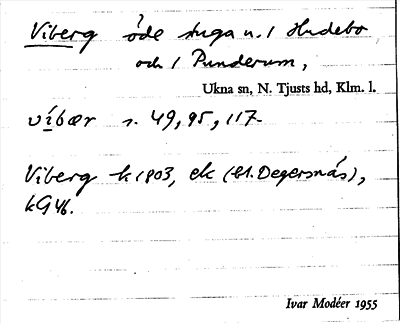 Viberg öde stuga u. / Hudebo
och / Punderum,
Ukna sn, N. Tjusts hd, Klm. l.
víbær s. 49, 95, 117.
Viberg k 1803, ek (bl. Degersnäs),
kG 46.
Ivar Modéer 1955